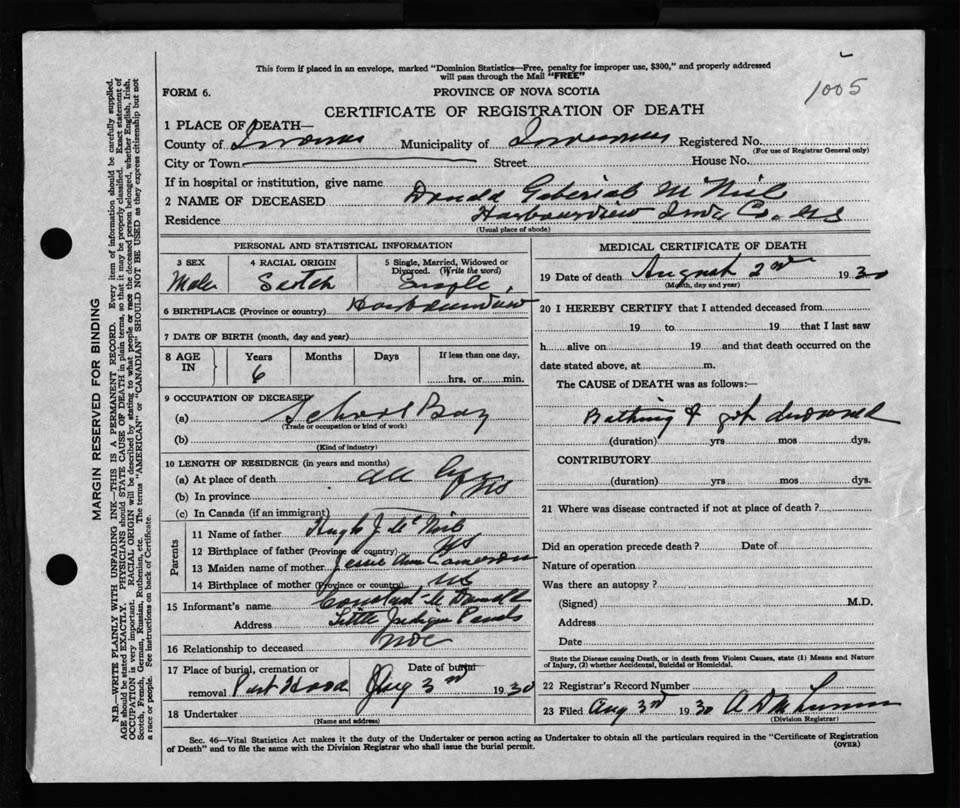 1005
This form if placed in an envelope, marked "Dominion Statistics—Free, penalty for improper use, $300," and properly addressed
will pass through the Mail "FREE"
FORM 6.
PROVINCE OF NOVA SCOTIA
CERTIFICATE OF REGISTRATION OF DEATH
1 PLACE OF DEATH—
County of Municipality of Inverness Registered No.
(For use of Registrar General only)
City or Town Street House No.
If in hospital or institution, give name
2 NAME OF DECEASED Donald McNeil
Residence Harbourview Co. N S
(Usual place of abode)
PERSONAL AND STATISTICAL INFORMATION
3 SEX 4 RACIAL ORIGIN 5 Single, Married, Widowed or
Divorced. (Write the word)
Male Scotch Single
6 BIRTHPLACE (Province or country) Harbourview
7 DATE OF BIRTH (month, day and year)
8 AGE IN Years Months Days If less than one day,
6 hrs. or min.
9 OCCUPATION OF DECEASED
(a) School Boy
(Trade or occupation or kind of work)
(b)
(Kind of industry)
10 LENGTH OF RESIDENCE (in years and months)
(a) At place of death all life
(b) In province
(c) In Canada (if an immigrant)
Parents
11 Name of father Hugh J. McNeil
12 Birthplace of father (Province or country) NS
13 Maiden name of mother Jessie Ann Cameron
14 Birthplace of mother (Province or country) NS
15 Informant's name McDonald
Address Little Judique Ponds
16 Relationship to deceased
17 Place of burial, cremation or Date of burial
removal Port Hood Aug 3rd 1930
18 Undertaker
(Name and address)
MEDICAL CERTIFICATE OF DEATH
19 Date of death August 2nd 1930
(Month, day and year)
20 I HEREBY CERTIFY that I attended deceased from
19 to 19 that I last saw
h alive on 19 and that death occurred on the
date stated above, at m.
The CAUSE of DEATH was as follows:—
Bathing & got drowned
(duration) yrs mos dys.
CONTRIBUTORY
(duration) yrs mos dys.
21 Where was disease contracted if not at place of death?
Did an operation precede death? Date of
Nature of operation
Was there an autopsy?
(Signed) M.D.
Address
Date
State the Disease causing Death, or in death from Violent Causes, state (1) Means and Nature
of Injury, (2) whether Accidental, Suicidal or Homicidal.
22 Registrar's Record Number
23 Filed Aug 3rd 1930 A D
(Division Registrar)
Sec. 46—Vital Statistics Act makes it the duty of the Undertaker or person acting as Undertaker to obtain all the particulars required in the "Certificate of Registration
of Death" and to file the same with the Division Registrar who shall issue the burial permit.
(OVER)
MARGIN RESERVED FOR BINDING
N.B.—WRITE PLAINLY WITH UNFADING INK—THIS IS A PERMANENT RECORD. Every item of information should be carefully supplied.
AGE should be stated EXACTLY. PHYSICIANS should STATE CAUSE OF DEATH in plain terms, so that it may be properly classified. Exact statement of
OCCUPATION is very important. RACIAL ORIGIN will be described by stating to what people or race the deceased person belonged, whether English, Irish,
Scotch, French, German, Russian, Ruthenian, etc. The terms "AMERICAN" or "CANADIAN" SHOULD NOT BE USED as they express citizenship but not
a race or people. See instructions on back of Certificate.